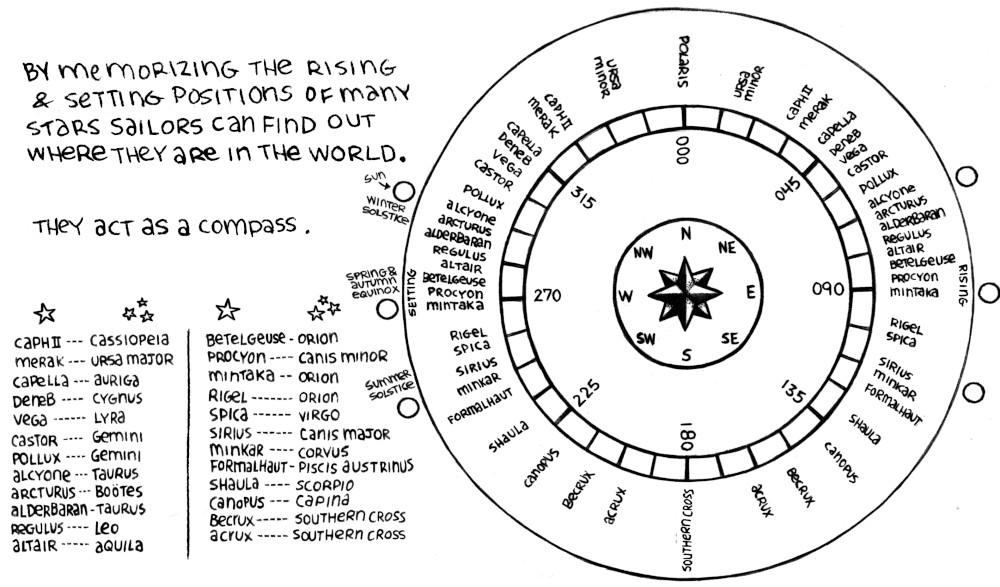 BY MEMORIZING THE RISING
& SETTING POSITIONS OF MANY
STARS SAILORS CAN FIND OUT
WHERE THEY ARE IN THE WORLD.
THEY ACT AS A COMPASS.
CAPH II --- CASSIOPEIA
MERAK --- URSA MAJOR
CAPELLA --- AURIGA
DENEB --- CYGNUS
VEGA ------ LYRA
CASTOR ---- GEMINI
POLLUX ---- GEMINI
ALCYONE -- TAURUS
ARCTURUS -- BOÖTES
ALDERBARAN - TAURUS
REGULUS ---- LEO
ALTAIR ----- AQUILA
BETELGEUSE - ORION
PROCYON ---- CANIS MINOR
MINTAKA -- ORION
RIGEL ------- ORION
SPICA ------- VIRGO
SIRIUS ------ CANIS MAJOR
MINKAR ---- CORVUS
FORMALHAUT - PISCIS AUSTRINUS
SHAULA ---- SCORPIO
CANOPUS --- CAPINA
BECRUX ----- SOUTHERN CROSS
ACRUX ----- SOUTHERN CROSS
SUN
WINTER
SOLSTICE
SPRING &
AUTUMN
EQUINOX
SUMMER
SOLSTICE
SETTING
POLARIS
URSA
MINOR
CAPH II
MERAK
CAPELLA
DENEB
VEGA
CASTOR
POLLUX
ALCYONE
ARCTURUS
ALDERBARAN
REGULUS
ALTAIR
BETELGEUSE
PROCYON
MINTAKA
RIGEL
SPICA
SIRIUS
MINKAR
FORMALHAUT
SHAULA
CANOPUS
BECRUX
ACRUX
SOUTHERN CROSS
URSA
MINOR
CAPH II
MERAK
CAPELLA
DENEB
VEGA
CASTOR
POLLUX
ALCYONE
ARCTURUS
ALDERBARAN
REGULUS
ALTAIR
BETELGEUSE
PROCYON
MINTAKA
RIGEL
SPICA
SIRIUS
MINKAR
FORMALHAUT
SHAULA
CANOPUS
BECRUX
ACRUX
RISING
000
045
090
135
180
225
270
315
N
NE
E
SE
S
SW
W
NW